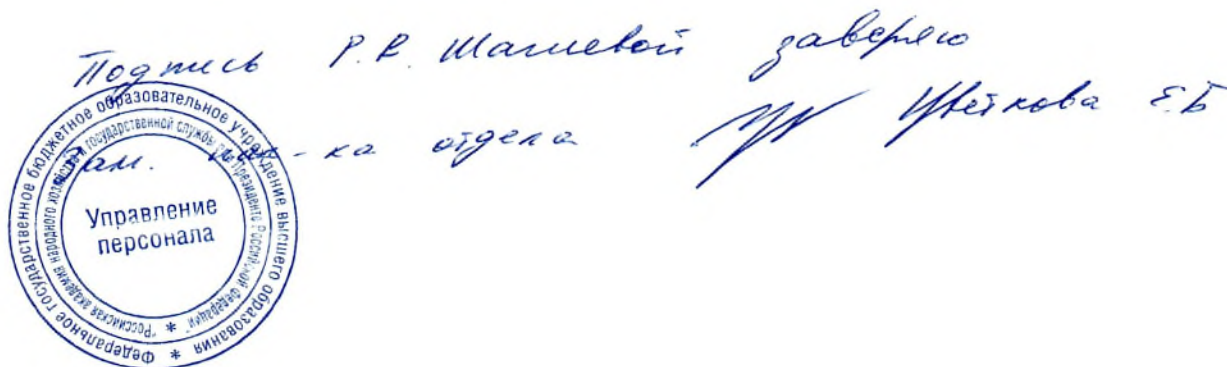 Подпись Р.Р. Машевой заверяю
Зам. нач-ка отдела Цветкова Е.Б
Федеральное государственное бюджетное образовательное учреждение высшего образования *
"Российская академия народного хозяйства и государственной службы при Президенте Российской Федерации" *
Управление
персонала